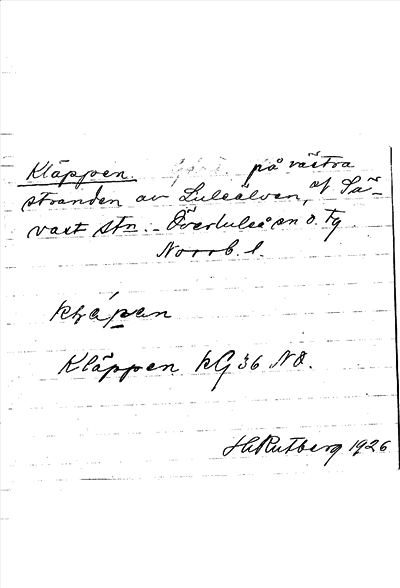 Kläppen. på västra
stranden av Luleälven, Sä-
vast stn. - Överluleå sn o. tg
Norrb. l.
Kläppen kG 36 NO.
H Rutberg 1926